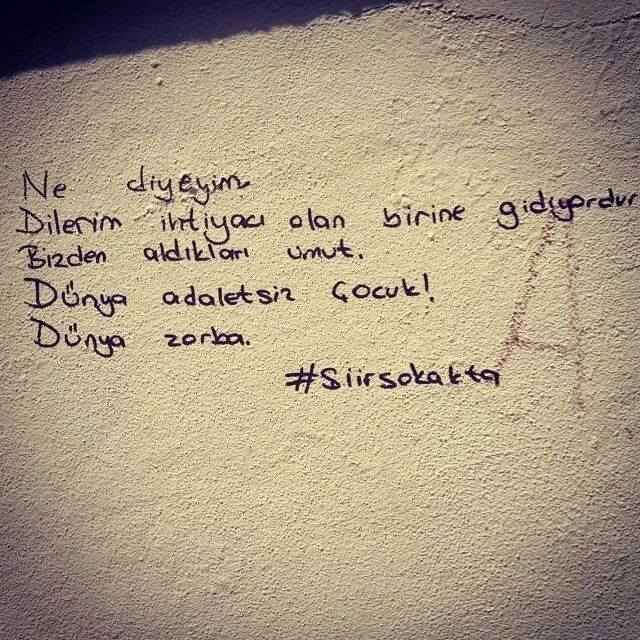 Ne diyeyim
Dilerim ihtiyacı olan birine gidiyordur
Bizden aldıkları umut.
Dünya adaletsiz çocuk!
Dünya zorba.
#Siirsokakta
A